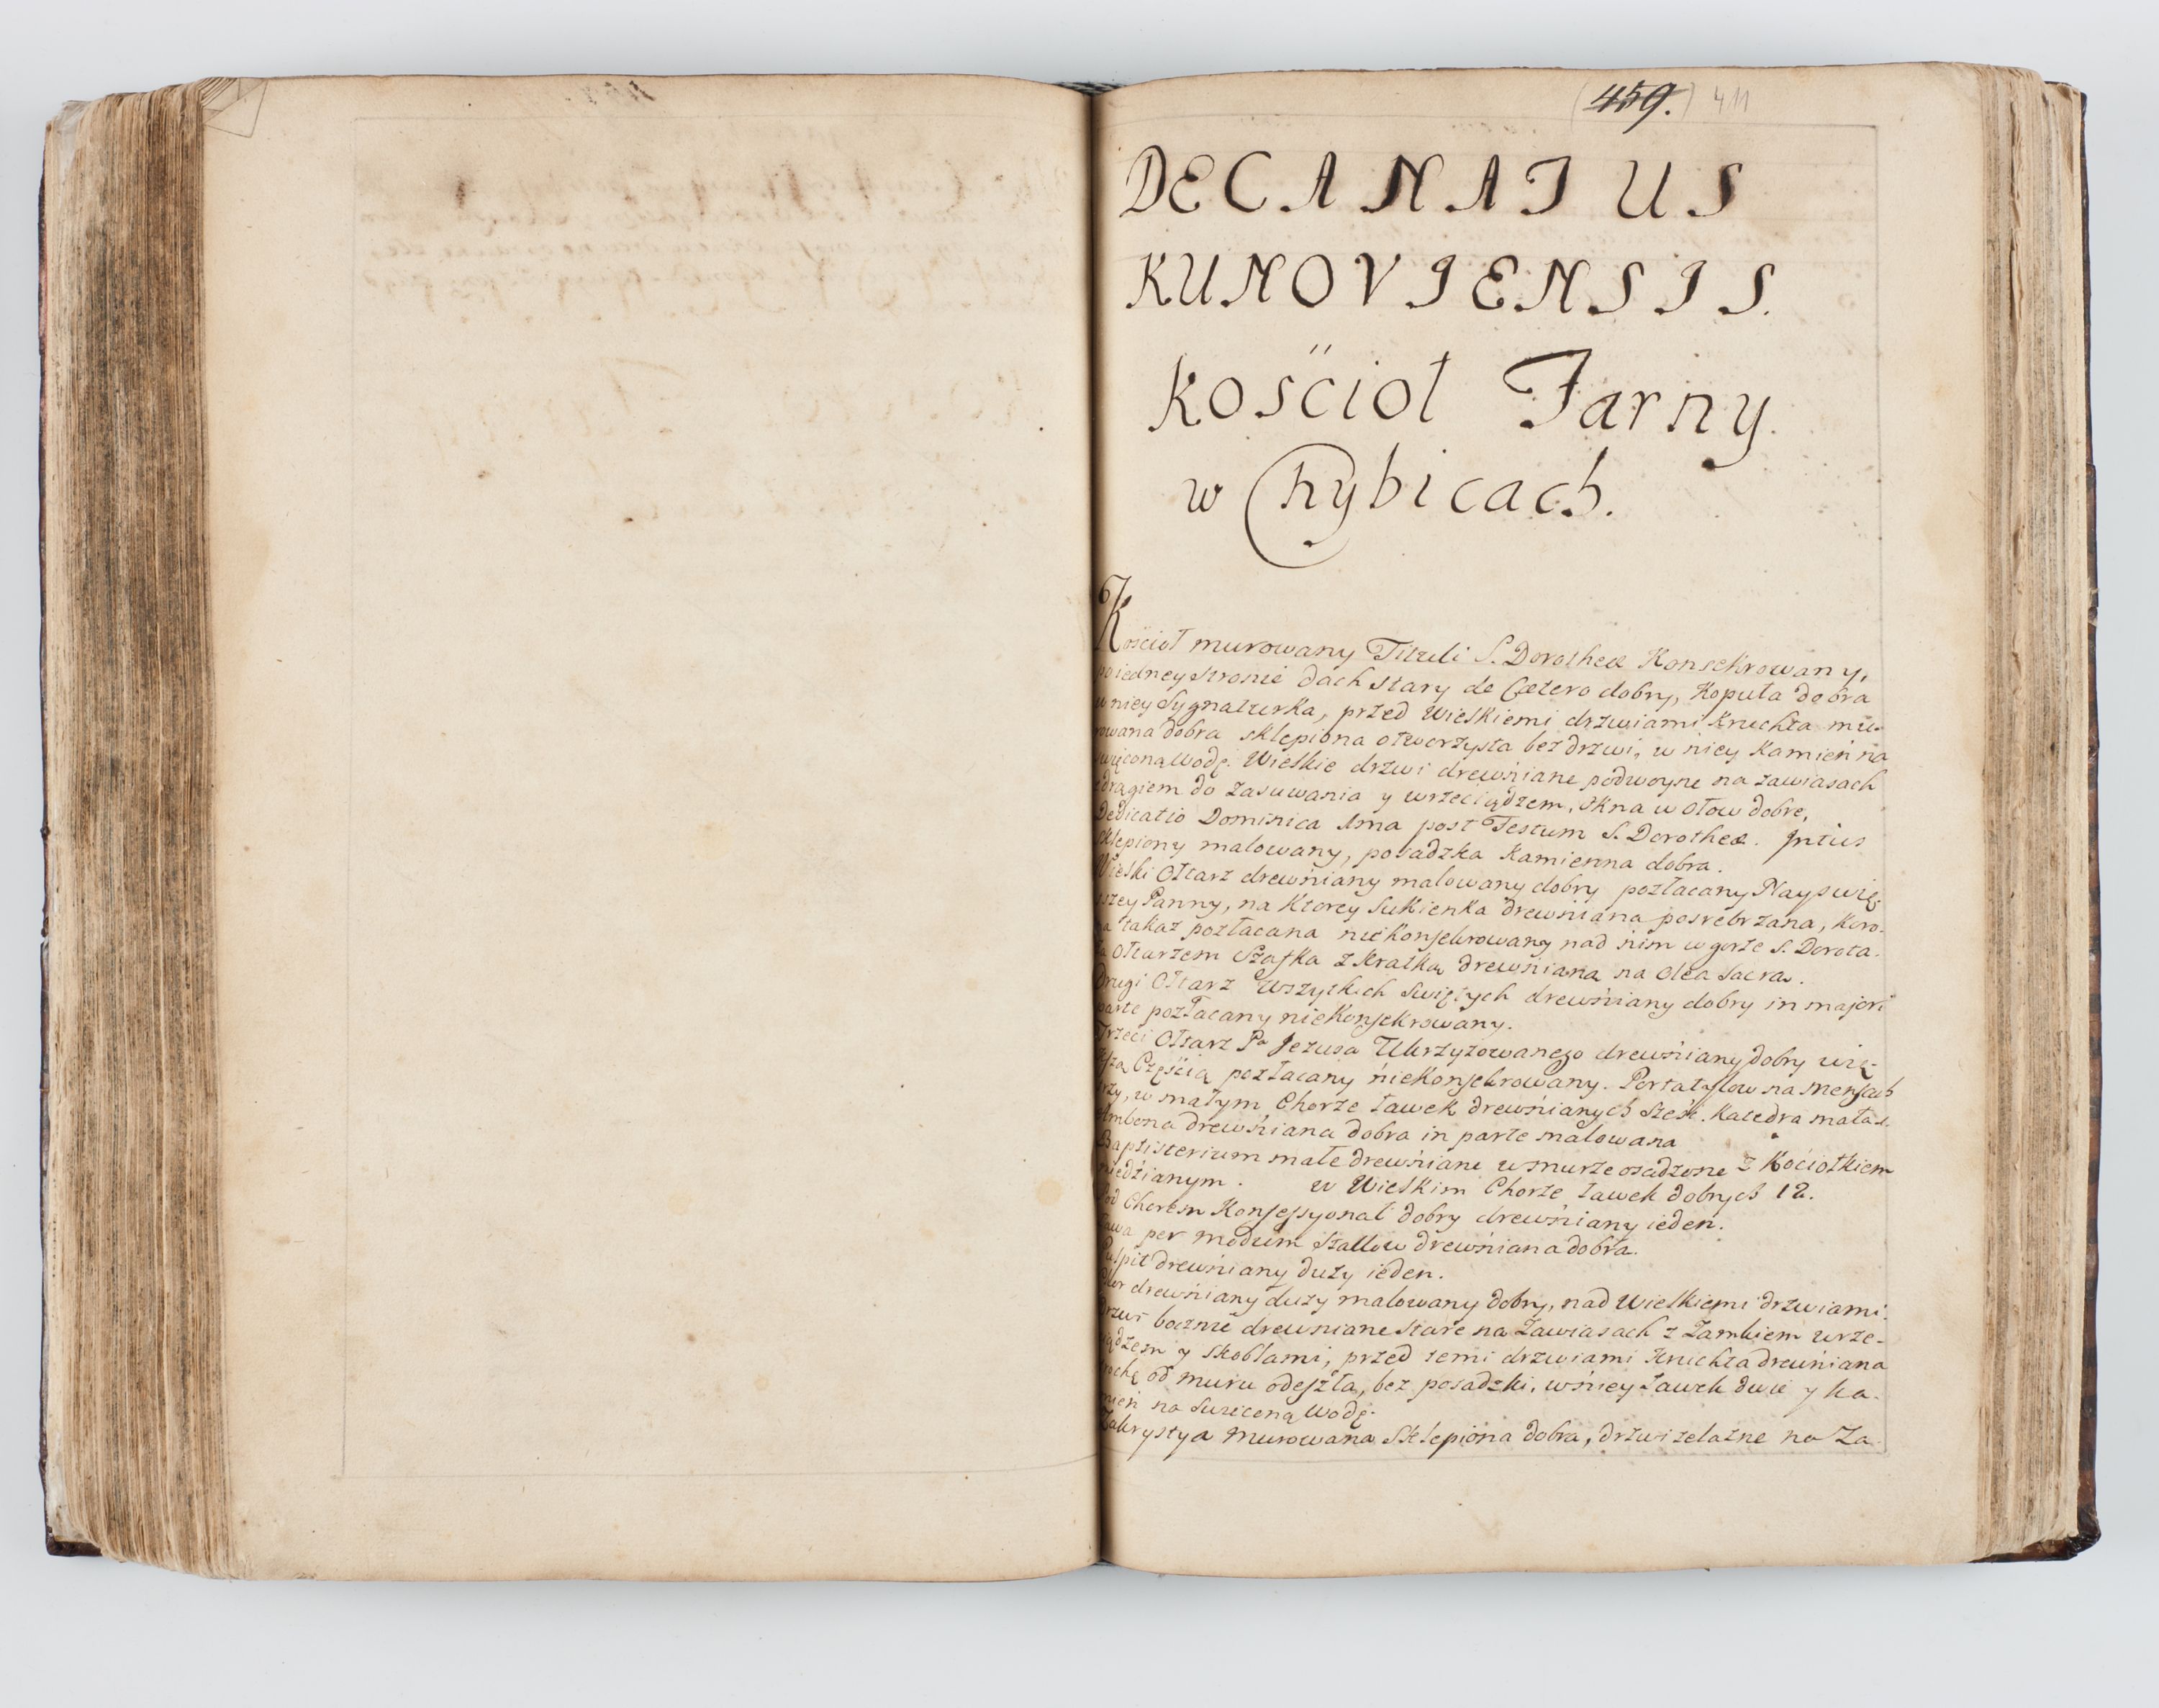 (459.) 411
DECANATUS
KUNOVIENSIS.
Kościoł Farny
w Chybicach.
Kościoł murowany Tituli S. Dorotheæ Konsekrowany,
po iedney stronie dach stary de Cætero dobry, Kopuła dobra
w niey Sygnaturka, przed Wielkiemi drzwiami Kruchta mu-
rowana dobra sklepiona otworzysta bez drzwi, w niey Kamień na
święconą Wodę. Wielkie drzwi drewniane podwoyne na zawiasach
z drągiem do zasuwania y wrzeciądzem, Okna w ołow dobre,
Dedicatio Dominica 1ma post Festum S. Dorotheæ. Intus
sklepiony malowany, posadzka Kamienna dobra.
Wielki Ołtarz drewniany malowany dobry pozłacany Nayswię-
szey Panny, na Ktorey Sukienka drewniana posrebrzana, Koro-
na takaż pozłacana nieKonsekrowany nad nim w gorze S. Dorota.
Za Ołtarzem Szafka z Kratką drewniana na Olea Sacra.
Drugi Ołtarz Wszytkich Swiętych drewniany dobry in majori
parte pozłacany nieKonsekrowany.
Trzeci Ołtarz Pa Jezusa Ukrzyżowanego drewniany dobry wię-
kszą Częścią pozłacany nieKonsekrowany. Portatylow na Mensach
trzy, w małym Chorze ławek drewnianych sześć. Katedra mała
Ambona drewniana dobra in parte malowana
Baptisterium małe drewniane w murze osadzone z Kociołkiem
miedzianym. w Wielkim Chorze ławek dobrych 12.
Pod Chorem Konfessyonał dobry drewniany ieden.
Ława per modum Stallow drewniana dobra.
Pulpit drewniany duży ieden.
Chor drewniany duży malowany dobry, nad Wielkiemi drzwiami.
Drzwi boczne drewniane stare na Zawiasach z Zamkiem wrze-
ciądzem y skoblami, przed temi drzwiami Kruchta drewniana
trochę od muru odeszła, bez posadzki, w niey ławek dwie y Ka-
mień na Swięconą Wodę.
Zakrystya murowana Sklepiona dobra, drzwi żelazne na Za-